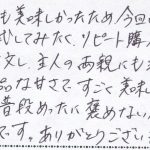 も美味しかったため今回
試してみた。リピート購入
文し、主人の両親にも
品な甘さで、すごく美味し
普段めったに褒めない
です。ありがとうござい